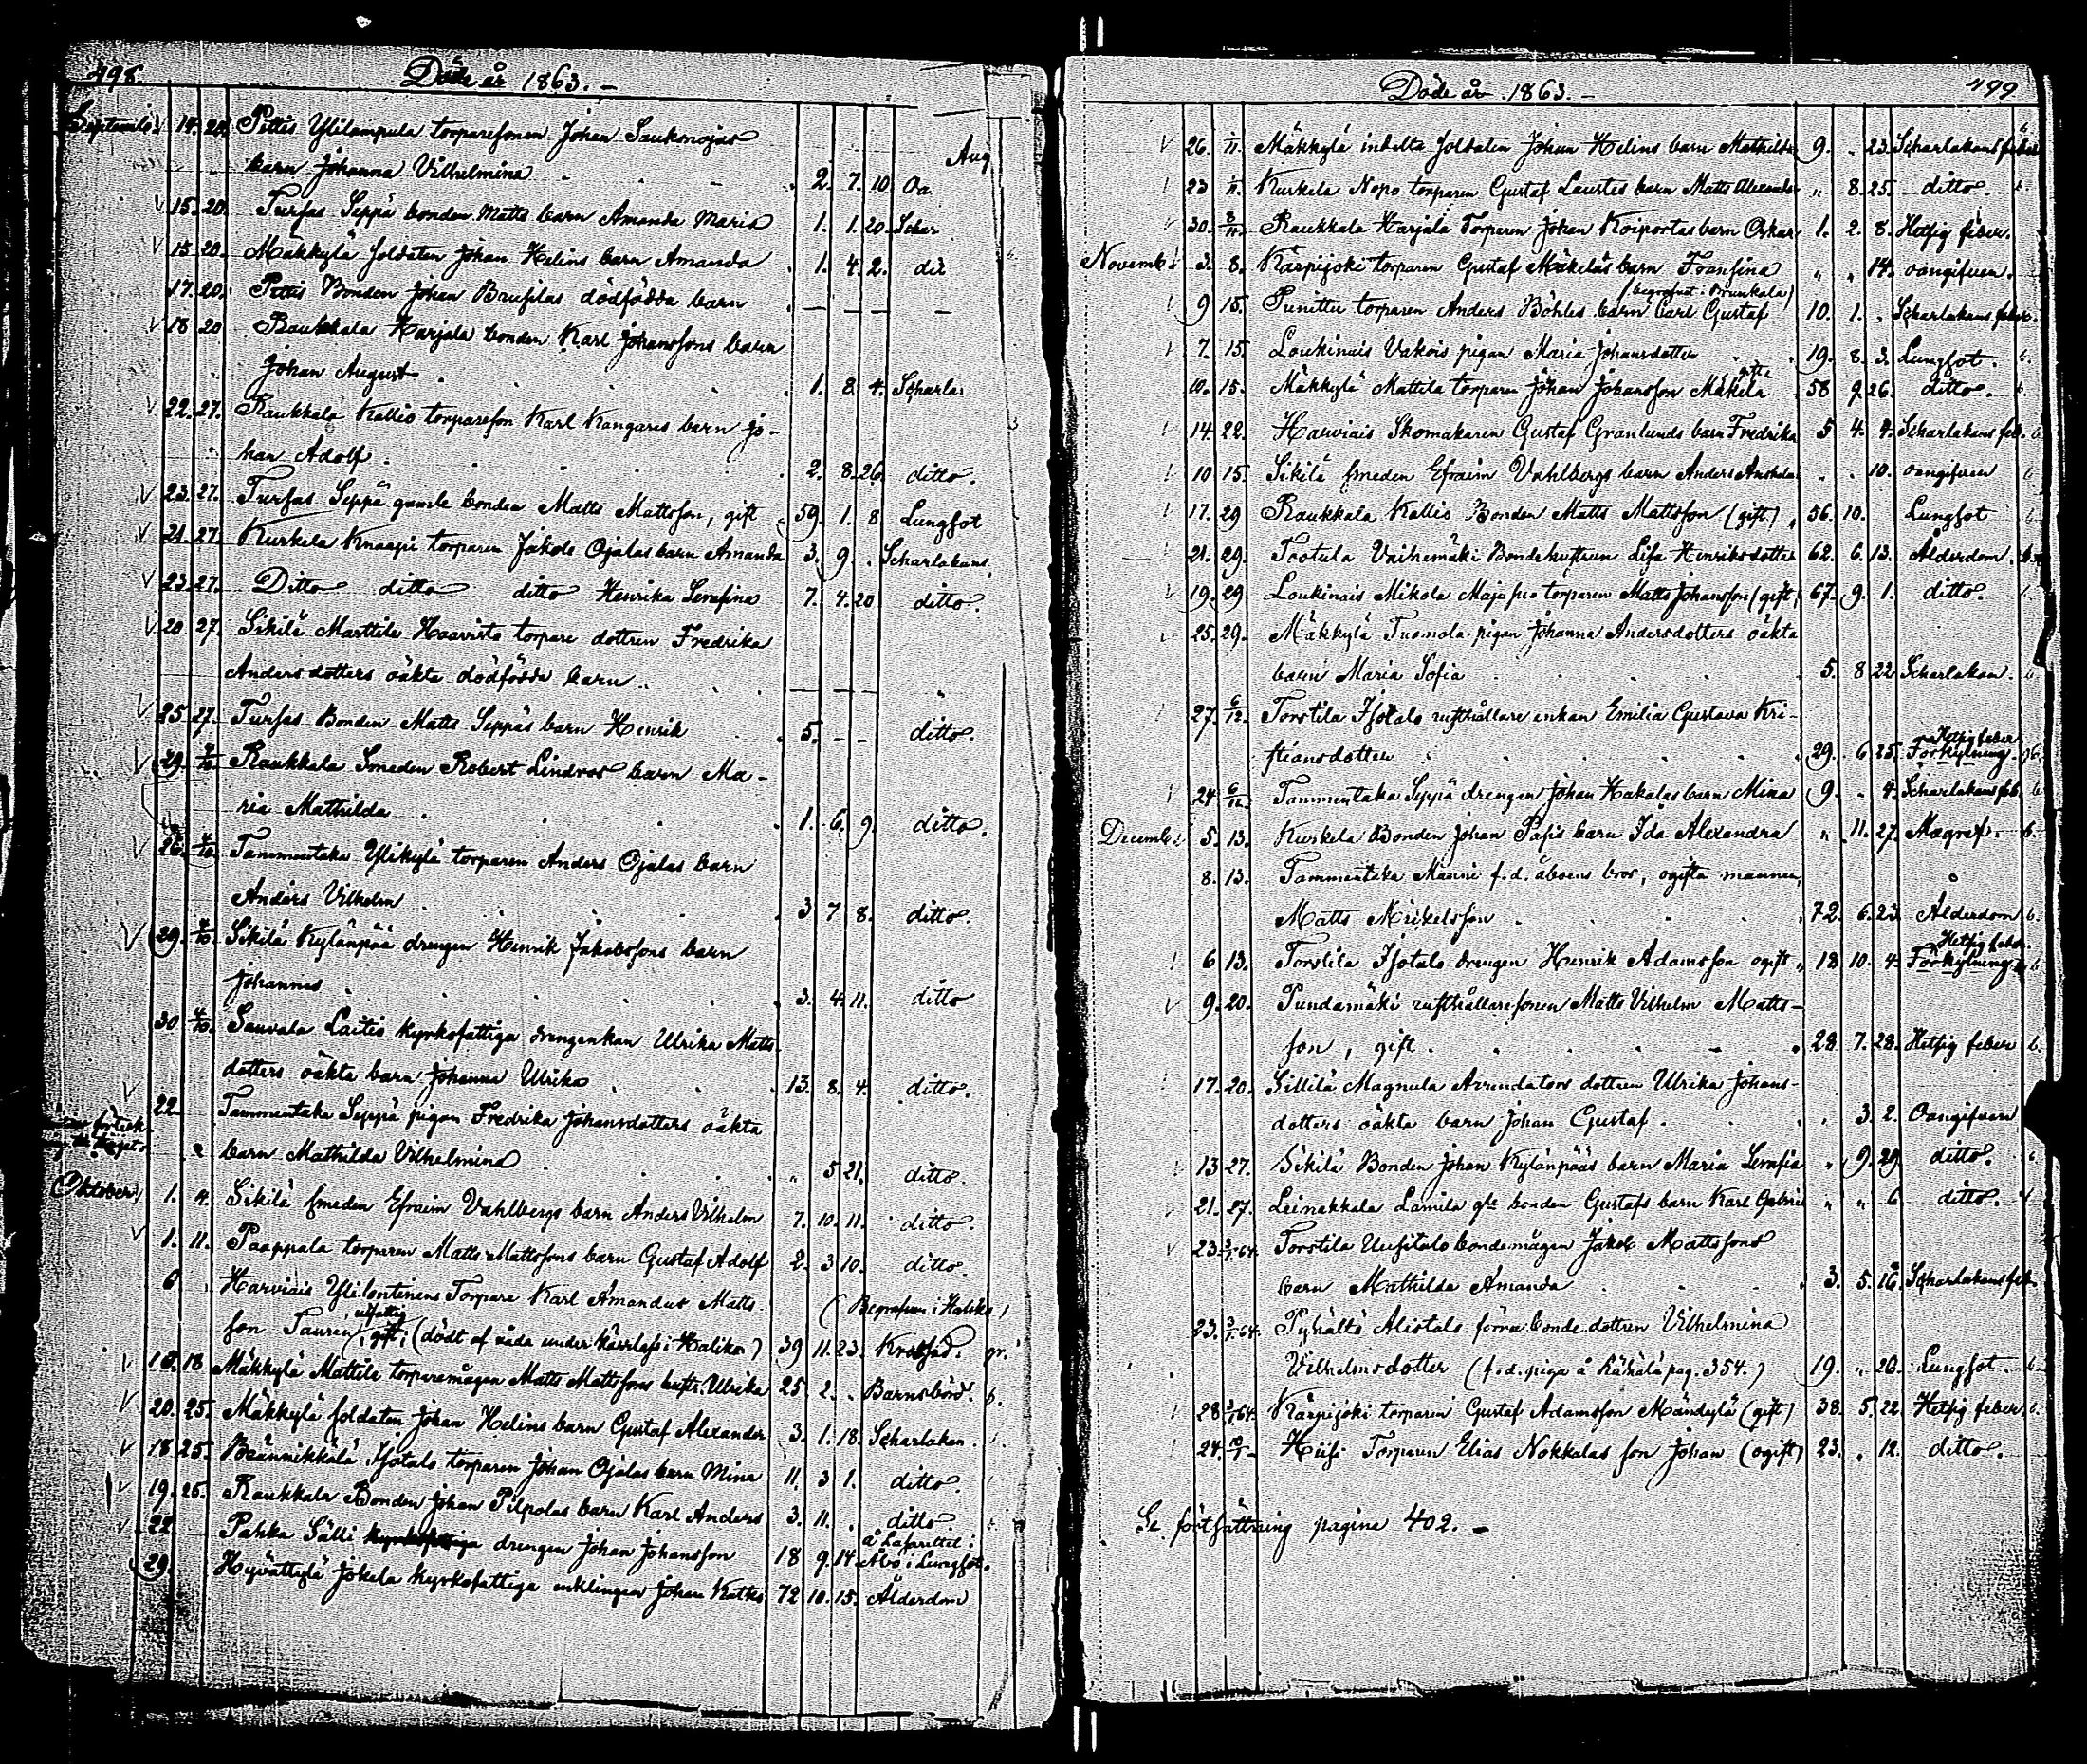 498. Döde år 1863. –
Septemb: 14. 20. Pettis Ylilampula torparesonen Johan Saukonojas
Aug
barn Johanna Vilhelmina 2. 7. 10 Oa
15. 20. Turfas Seppä bonden Matts barn Amanda Maria 1. 1. 20. Schar
15 20. Mäkkylä soldaten Johan Helins barn Amanda 1. 4. 2. dit
17. 20. Pettis Bonden Johan Brusilas dödfödda barn — — —
18 20 Raukkala Harjala bonden Karl Johanssons barn
Johan August 1. 8 4. Scharla
22. 27. Raukkala Kallio torpareson Karl Kangares barn Jo-
han Adolf 2. 8. 26. ditto.
23. 27. Turfas Seppä gamle bonden Matts Mattsson, gift 59. 1. 8. Lungsot
21. 27. Kurkela Knaapi torparen Jakob Ojalas barn Amanda 3. 9. . Scharlakans
23. 27. Ditto ditto ditto Henrika Serafina 7. 4. 20 ditto.
20 27. Sikilä Marttila Haavisto torpare dottren Fredrika
Andersdotters oäkta dödfödda barn. — — —
25 27. Turfas Bonden Matts Seppäs barn Henrik 5. – – ditto.
29. 4/10. Raukkala Smeden Robert Lindroos barn Ma-
ria Mathilda 1. 6. 9. ditto.
26. 4/10. Tammentaka Ylikylä torparen Anders Ojalas barn
Anders Vilhelm 3 7 8. ditto.
29. 4/10. Sikilä Kylänpää drengen Henrik Jakobssons barn
Johannes 3. 4. 11. ditto
30 4/10. Sauvala Laitis kyrkofattiga drengenkan Ulrika Matts-
dotters oäkta barn Johanna Ulrika 13. 8. 4. ditto.
22. Tammentaka Seppä pigan Fredrika Johansdotters oäkta
barn Mathilda Vilhelmina " 5 21. ditto.
Oktober 1. 4. Sikilä smeden Efraim Vahlbergs barn Anders Vilhelm 7. 10. 11. ditto.
1. 11. Paappala torparen Matts Mattssons barn Gustaf Adolf 2. 3 10. ditto.
6 Harviais Ylilontinens Torpare Karl Amandus Matts- (Begrafven i Haliko)
son Taurén utfattig (gift) (dödt af våda under kärrlass i Haliko) 39 11. 23. Krossad. gr.
13. 18 Mäkkylä Mattila torparemågen Matts Mattssons hustr. Ulrika 25 2. . Barnsbörd. b.
20. 25. Mäkkylä soldaten Johan Helins barn Gustaf Alexander 3. 1. 18. Scharlakan.
18 25. Brännikkälä Isotalo torparen Johan Ojalas barn Mina 11. 3 1. ditto.
19. 25. Raukkala Bonden Johan Pilpolas barn Karl Anders 3. 11. . ditto
22 Pahka Sälli kyrkofattiga drengen Johan Johansson 18 9. 14. å Lasarettet i Åbo i Lungsot.
29. Hyvättylä Jokela kyrkofattiga enklingen Johan Katko 72 10. 15. Ålderdom
Döde år 1863. – 499
26. 1/11. Mäkkylä indelta soldaten Johan Helins barn Mathilda 9. . 23. Scharlakansfeber
23 1/11. Kurkela Nopo torparen Gustaf Laurtes barn Matts Alexander " 8. 25. ditto.
30. 8/11. Raukkala Harjala Torparen Johan Koiportas barn Oskar 1. 2. 8. Hetsig feber.
Novemb: 3. 8. Karpijoki torparen Gustaf Mäkeläs barn Fransina " " 14. oangifven.
(begrafvet i Prunkala)
9 15. Punittu torparen Anders Böhles barn Carl Gustaf 10. 1. . Scharlakans feber.
7. 15. Loukinais Vakois pigan Maria Johansdotter 19. 8. 3. Lungsot. b.
gifte
10. 15. Mäkkylä Mattila torparen Johan Johansson Mäkelä 58 9. 26. ditto.
14. 22. Harviais Skomakaren Gustaf Granlunds barn Fredrika 5 4. 9. Scharlakans feb. b
10 15. Sikilä smeden Efraim Vahlbergs barn Anders . . 10. oangifven b
17. 29 Raukkala Kallio Bonden Matts Mattsson (gift) 56. 10. Lungsot
21. 29. Tootula Vaihemäki Bondehustrun Lisa Henriksdotter 62. 6. 13. Ålderdom. b.
19. 29 Loukinais Mikola Majasuo torparen Matts Johansson (gift) 67. 9. 1. ditto.
25. 29. Mäkkylä Tuomola pigan Johanna Andersdotters oäkta
barn Maria Sofia 5. 8 22 Scharlakan.
27. 6/12. Torstila Isotalo rusthållare enkan Emilia Gustava Kri-
Hetsig feber
stiansdotter 29. 6 25. Förkylning. b.
24 6/12. Tammentaka Seppä drengen Johan Hakalas barn Mina 9. . 4. Scharlakans feb. b
Decemb: 5. 13. Kurkela Bonden Johan Pasis barn Ida Alexandra " 11. 27. Magref. b.
8. 13. Tammentaka Manni f.d. åboens bror, ogifta mannen,
Matts Mickelsson 72. 6. 23. Ålderdom b.
Hetsig feber.
6 13. Torstila Isotalo drengen Henrik Adamsson ogift 18 10. 4. Förkylning b
9. 20. Pundamäki rusthållaresonen Matts Vilhelm Matts-
son, gift 28 7. 28. Hetsig feber b.
17. 20. Sillilä Magnula Arrendators dottren Ulrika Johans-
dotters oäkta barn Johan Gustaf " 3. 2. Oangifven
13 27. Sikilä Bonden Johan Kylänpääs barn Maria Serafia " 9. 29. ditto.
21. 27. Leinakkala Lamila gle bonden Gustafs barn Karl Gabriel " " 6 ditto.
23 3/1 64. Torstila Uusitalo bondemågen Jakob Mattssons
barn Mathilda Amanda 3. 5. 16. Scharlakansfeb.
23. 3/1 64. Pyhältö Alistalo förra bonde dottren Vilhelmina
Vilhelmsdotter (f.d. piga å pag. 354.) 19. " 20. Lungsot. b.
28 3/1 64. Karpijoki torparen Gustaf Adamsson Mändylä (gift) 38. 5. 22. Hetsig feber. b.
24. 10/1 – Hiisi Torparen Elias Nokkalas son Johan (ogift) 23. . 12. ditto.
Se fortsättning pagina 402. –